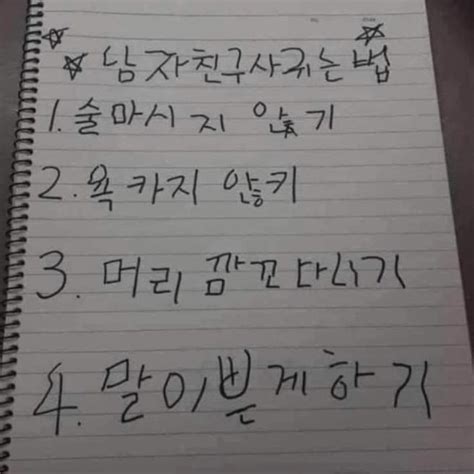 남자친구사귀는법
1. 술마시지 않기
2. 욕카지 않키
3. 머리 깜꼬다니기
4. 말이쁜게하기